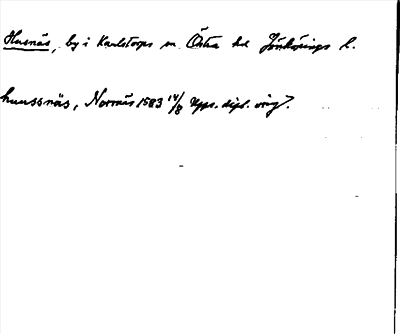 Husnäs, by i Karlstorps sn. Östra hd Jönköpings l.
huussnäs, Norrnäs 1583 14/8 Upps. dipl. orig.